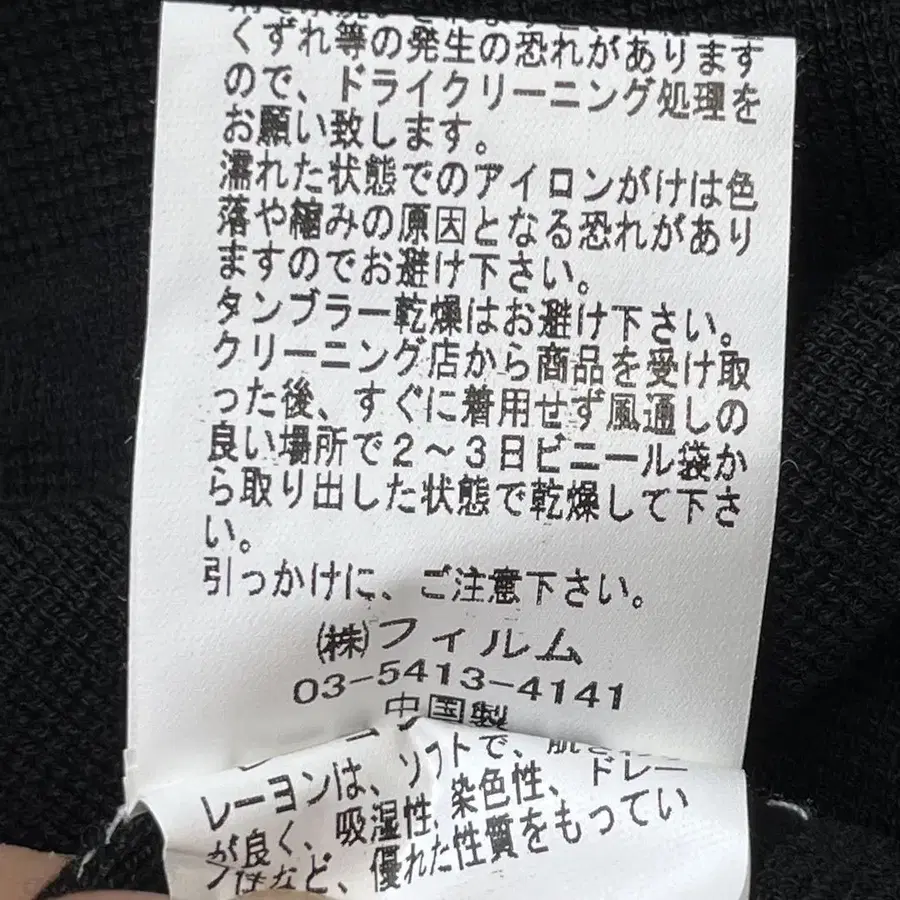 くずれ等の発生の恐れがあります
ので、ドライクリーニング処理を
お願い致します。
濡れた状態でのアイロンがけは色
落や縮みの原因となる恐れがあり
ますのでお避け下さい。
タンブラー乾燥はお避け下さい。
クリーニング店から商品を受け取
った後、すぐに着用せず風通しの
良い場所で2〜3日ビニール袋か
ら取り出した状態で乾燥して下さ
い。
引っかけに、ご注意下さい。
(株)フィルム
03-5413-4141
中国製
レーヨンは、ソフトで、肌
が良く、吸湿性、染色性、ドレー
プ性など、優れた性質をもってい